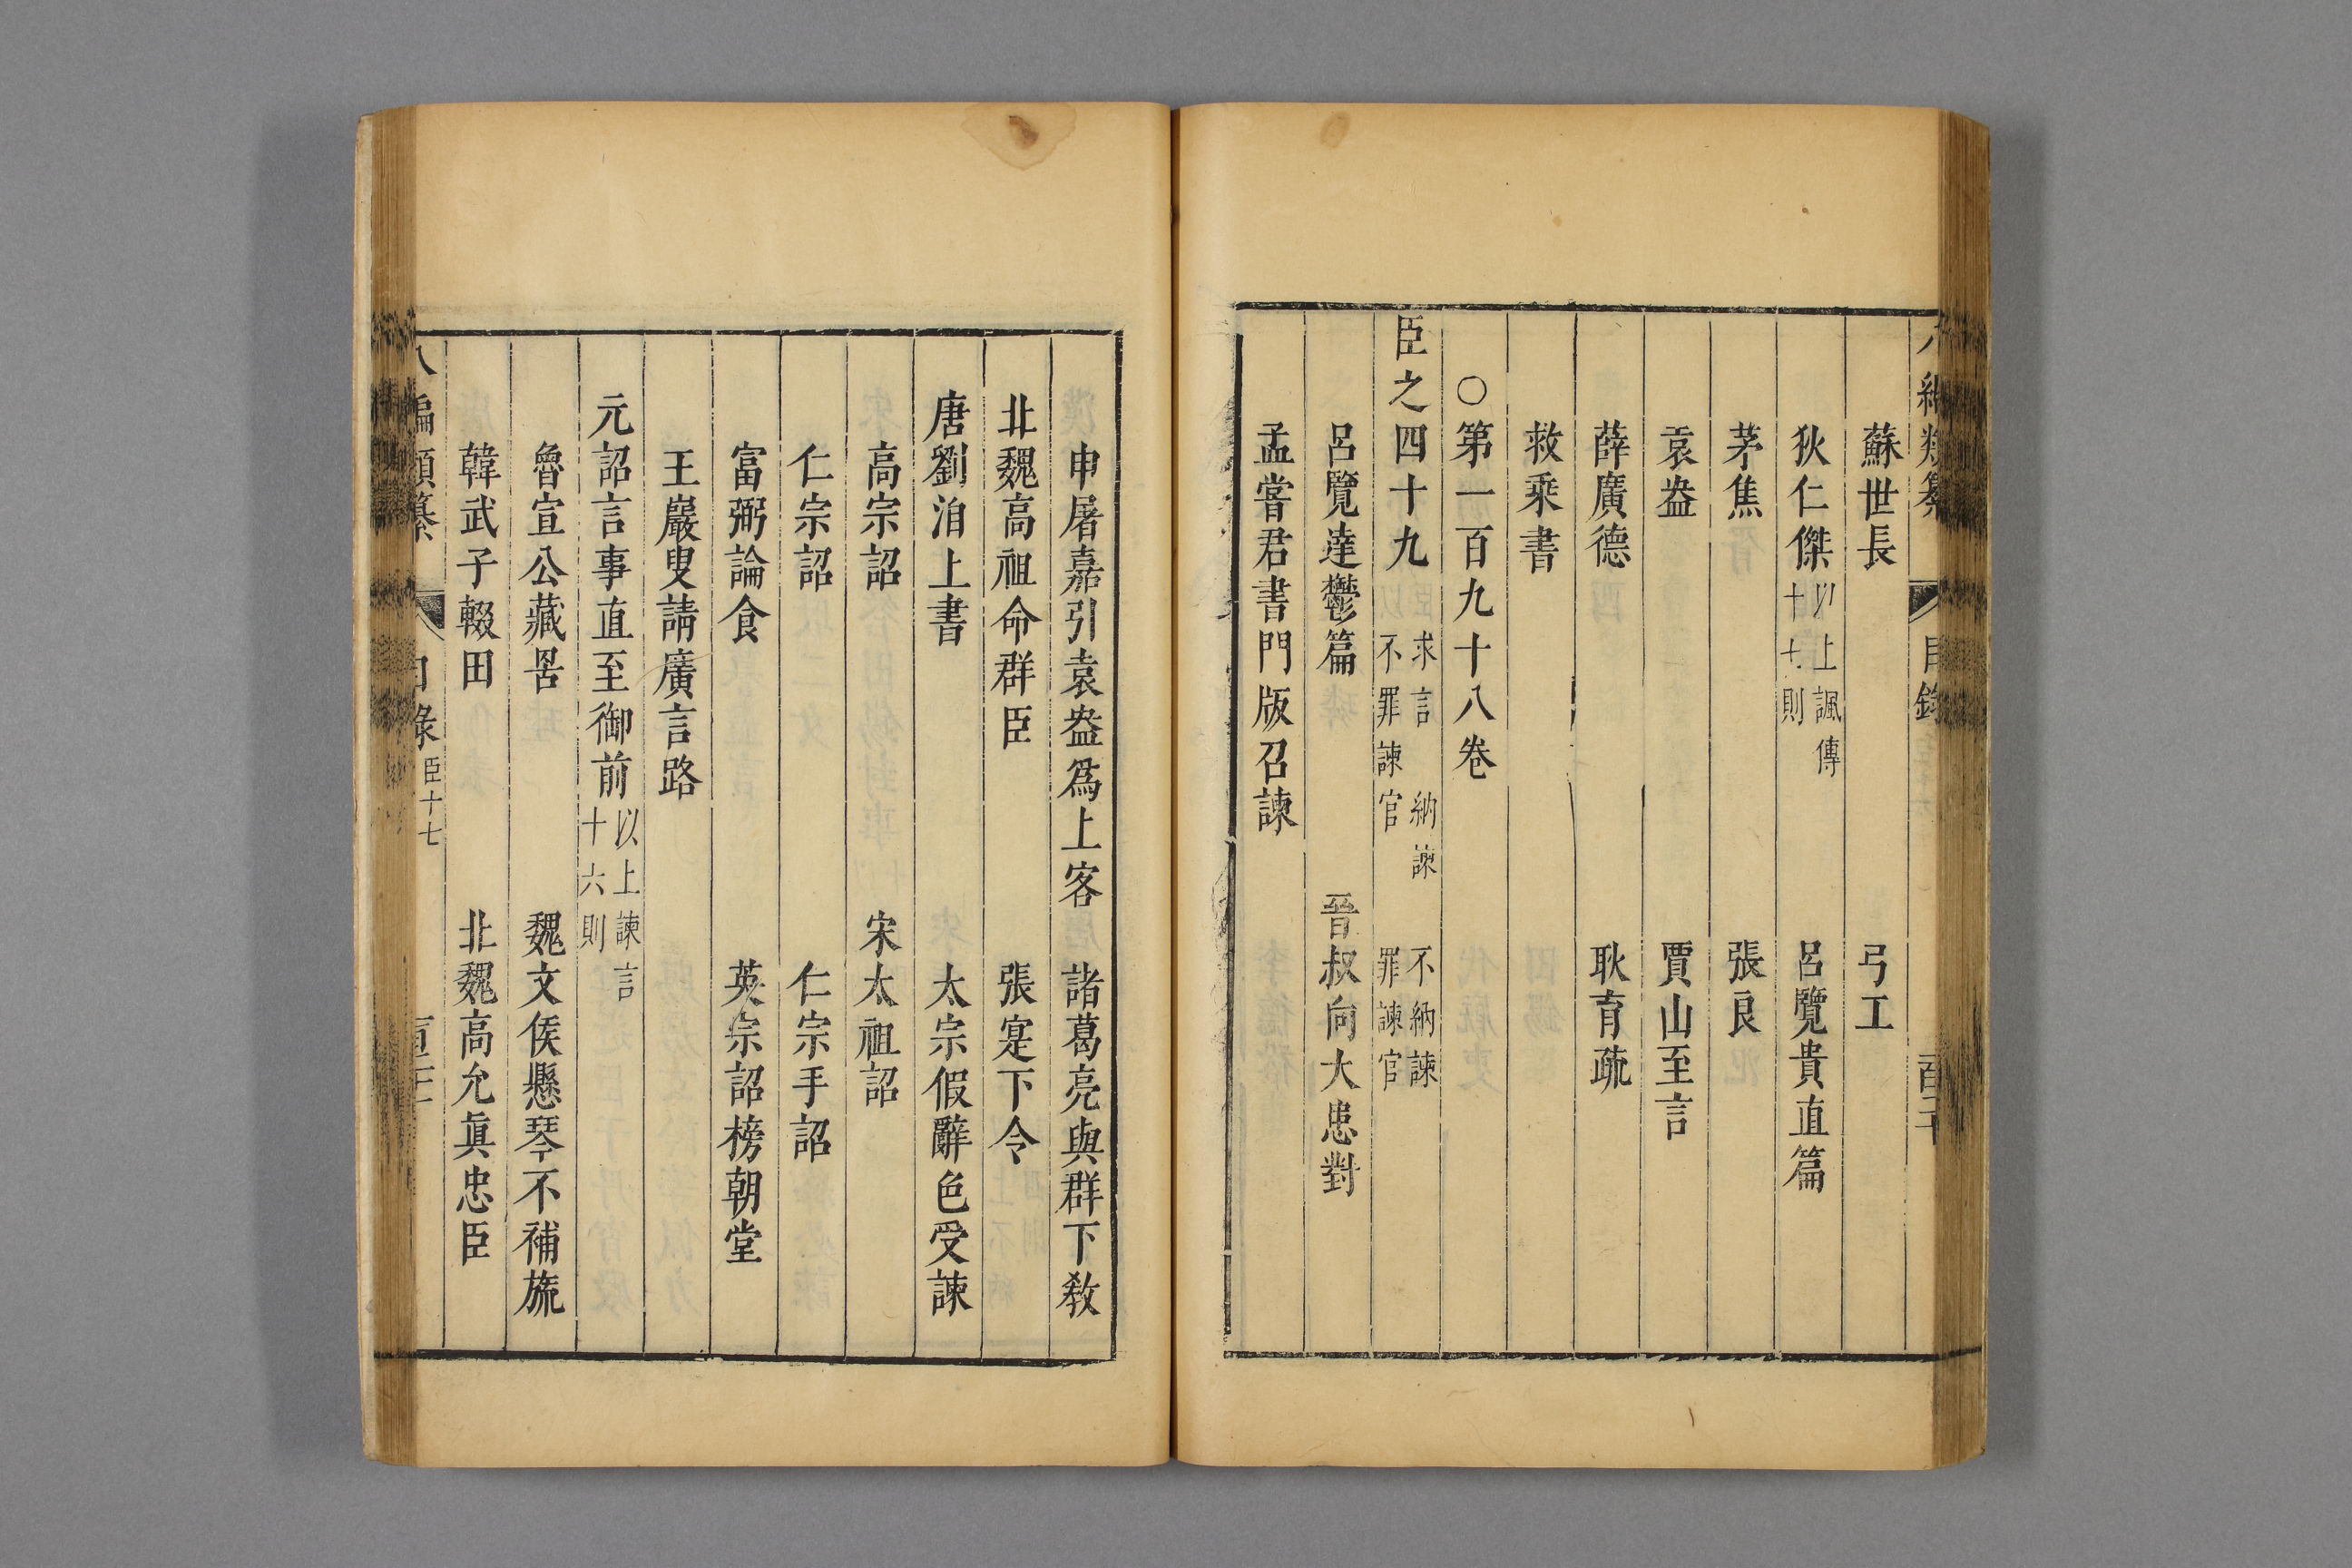 類纂 目録
蘇世長 弓工
狄仁傑 以上諷傳十七則 呂覽貴直篇
茅焦 張良
袁盎 賈山至言
薛廣德 耿育疏
救乘書
○第一百九十八卷
臣之四十九 求言 納諫 不納諫 不罪諫官 罪諫官
呂覽達鬱篇 晉叔向大患對
孟嘗君書門版召諫
申屠嘉引袁盎爲上客 諸葛亮與群下教
北魏高祖命群臣 張寔下令
唐劉洎上書 太宗假辭色受諫
高宗詔 宋太祖詔
仁宗詔 仁宗手詔
富弼論食 英宗詔榜朝堂
王巖叟請廣言路
元詔言事直至御前 以上諫言十六則
魯宣公藏罟 魏文侯懸琴不補旒
韓武子輟田 北魏高允眞忠臣
八編類纂 目錄 臣十七